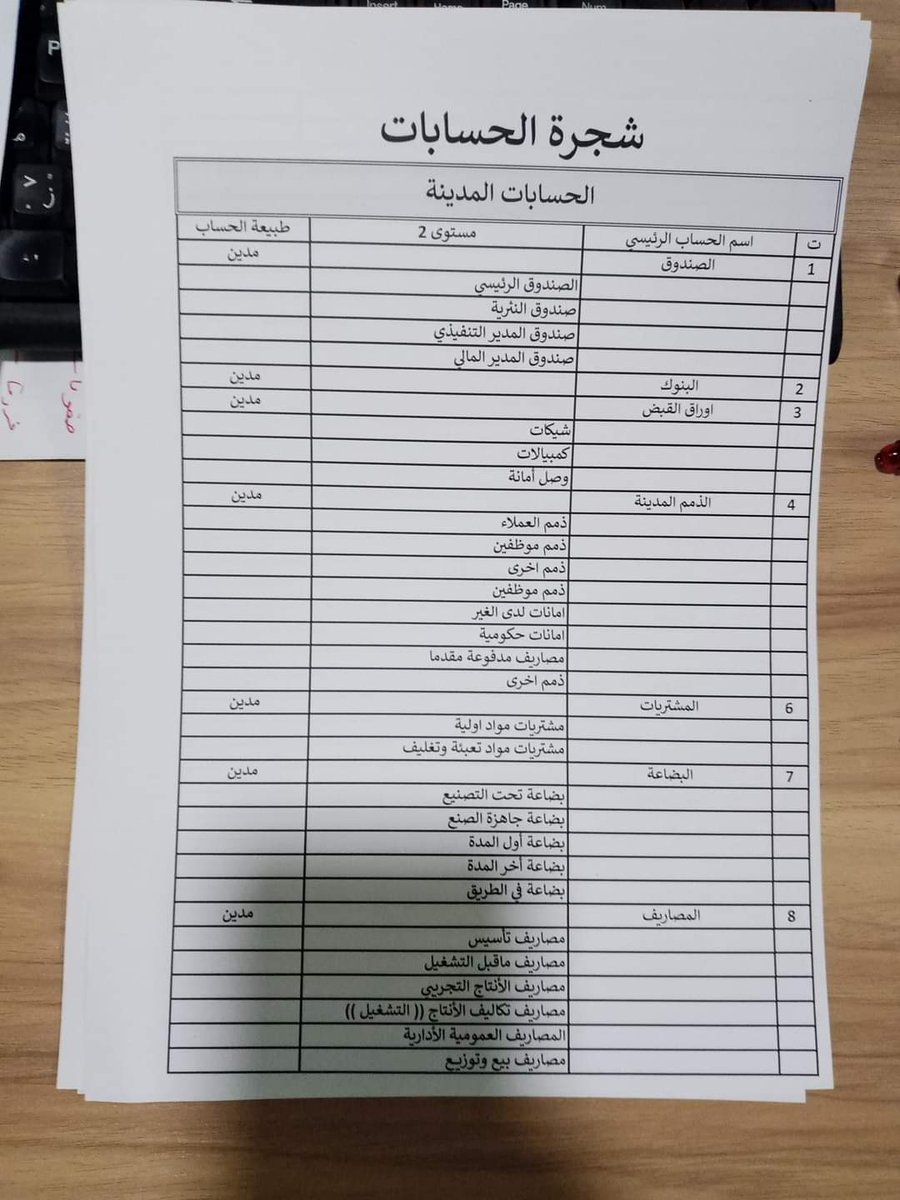 Insert Home Page Num
شجرة الحسابات
الحسابات المدينة
ت اسم الحساب الرئيسي مستوى 2 طبيعة الحساب
1 الصندوق مدين
الصندوق الرئيسي
صندوق النثرية
صندوق المدير التنفيذي
صندوق المدير المالي
2 البنوك مدين
3 اوراق القبض مدين
شيكات
كمبيالات
وصل أمانة
4 الذمم المدينة مدين
ذمم العملاء
ذمم موظفين
ذمم اخرى
ذمم موظفين
امانات لدى الغير
امانات حكومية
مصاريف مدفوعة مقدما
ذمم اخرى
6 المشتريات مدين
مشتريات مواد اولية
مشتريات مواد تعبئة وتغليف
7 البضاعة مدين
بضاعة تحت التصنيع
بضاعة جاهزة الصنع
بضاعة أول المدة
بضاعة أخر المدة
بضاعة في الطريق
8 المصاريف مدين
مصاريف تأسيس
مصاريف ماقبل التشغيل
مصاريف الأنتاج التجريبي
مصاريف تكاليف الأنتاج (( التشغيل ))
المصاريف العمومية الأدارية
مصاريف بيع وتوزيع